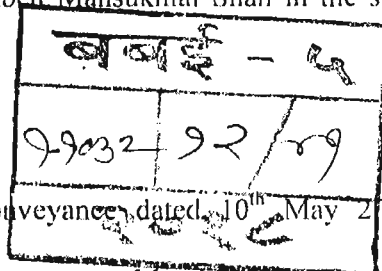 Mansukhlal Shah in the s
बबई - ५
११०३२ १२ /
onveyance dated 10th May 2